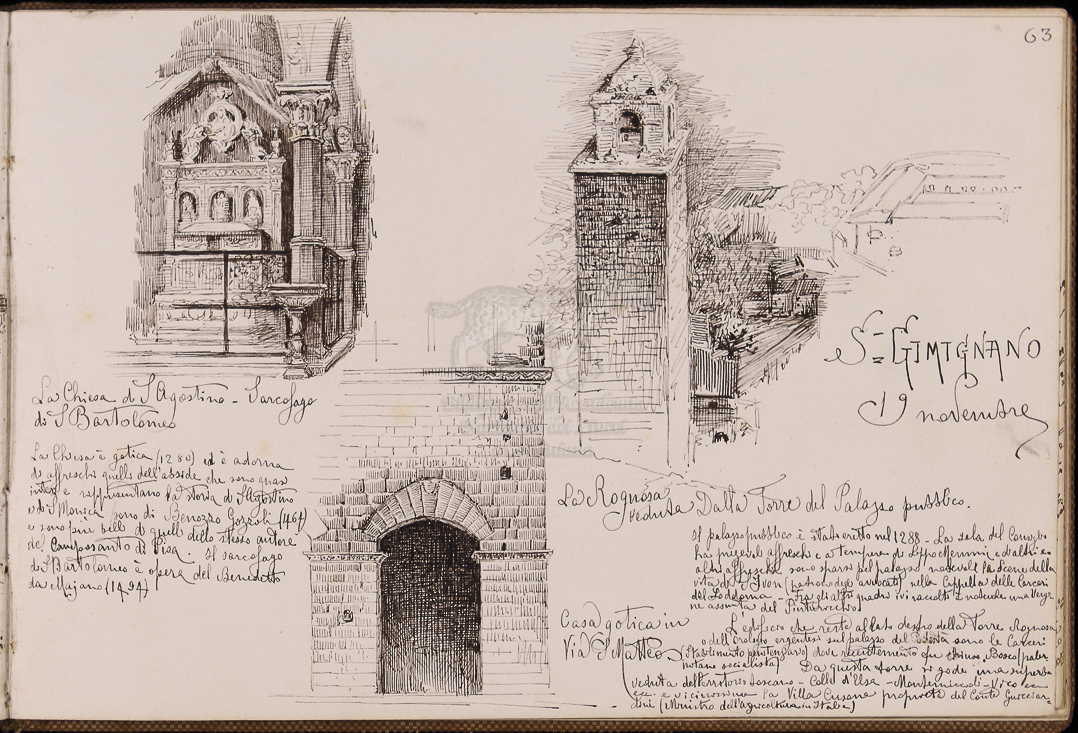 63
La Chiesa di S Agostino - Sarcofago
di S Bartolomeo
La Chiesa è gotica (1280) ed è adorna
di affreschi quelli dell'abside che sono quasi
interi e rappresentano la storia di S Agostino
e di S Monica sono di Benozzo Gozzoli (1464
e sono più belli di quelli dello stesso autore
del Camposanto di Pisa. Il sarcofago
di S Bartolomeo è opera del Benedetto
da Majano (1494)
S= GIMIGNANO
19 novembre
La Rognosa
veduta Dalla Torre del Palazzo pubblico.
Il palazzo pubblico è stato eretto nel 1288 - La sala del Consiglio
ha pregevoli affreschi e a tempera di Lippo Memmi e d'altri e
altri affreschi sono sparsi pel palazzo notevoli le Scene della
vita di S. Ivon (patrono degli avvocati) nella Cappella delle Carceri
del - Fra gli altri quadri ivi raccolti è notevole una Vergi-
ne assunta del Pinturicchio
Casa gotica in
Via S Matteo
L'edificio che resta al lato destro della Torre Rognosa
o dell'orologio ergentesi sul palazzo del sono le Carceri
(Stabilimento penitenziario) dove recentemente fu Bosco (paler
mitano socialista) Da questa torre si gode una superba
veduta del territorio toscano - Colle d'Elsa - - Vico ec
ecc. e vicinissima la Villa Cusona proprietà del Conte Guicciar-
dini (Ministro dell'agricoltura in Italia)